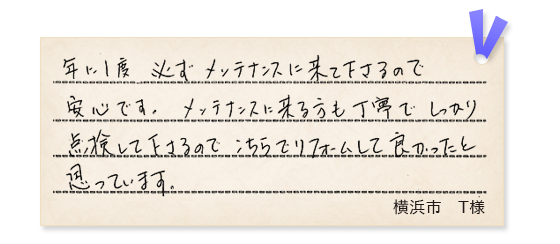 年に1度 必ず メンテナンスに来て下さるので
安心です。 メンテナンスに来る方も丁寧で しっかり
点検して下さるので こちらでリフォームして良かったと
思っています。
横浜市 T様